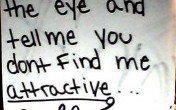 the eye and
tell me you
dont find me
attractive...